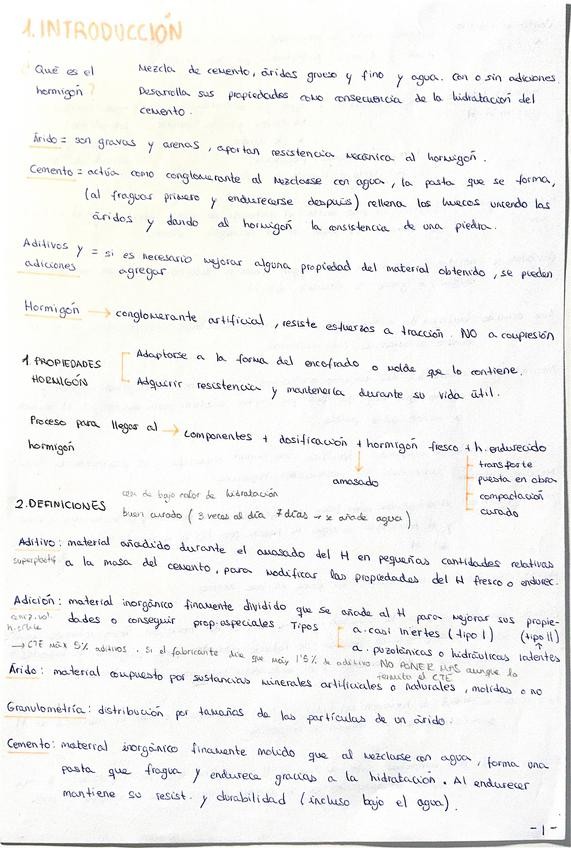 1. INTRODUCCIÓN
Qué es el hormigón?
Mezcla de cemento, áridos grueso y fino y agua. Con o sin adiciones.
Desarrolla sus propiedades como consecuencia de la hidratación del
cemento.
Árido = son gravas y arenas, aportan resistencia mecánica al hormigón.
Cemento = actúa como conglomerante al mezclarse con agua, la pasta que se forma,
(al fraguar primero y endurecerse después) rellena los huecos uniendo los
áridos y dando al hormigón la consistencia de una piedra.
Aditivos y adiciones = si es necesario mejorar alguna propiedad del material obtenido, se pueden
agregar
Hormigón → conglomerante artificial, resiste esfuerzos a tracción. NO a compresión
1. PROPIEDADES HORMIGÓN
Adaptarse a la forma del encofrado o molde que lo contiene.
Adquirir resistencia y mantenerla durante su vida útil.
Proceso para llegar al hormigón → componentes + dosificación + hormigón fresco + h. endurecido
↓ amasado
transporte
puesta en obra
compactación
curado
2. DEFINICIONES
de bajo calor de hidratación
buen curado (3 veces al día 7 días → se añade agua)
Aditivo: material añadido durante el amasado del H en pequeñas cantidades relativas
a la masa del cemento, para modificar las propiedades del H fresco o endurec.
superplastif
Adición: material inorgánico finamente dividido que se añade al H para mejorar sus propie-
dades o conseguir prop. especiales. Tipos
a. casi inertes (tipo I)
a. puzolánicas o hidráulicas latentes (tipo II)
→ CTE máx 5% aditivos. si el fabricante dice que máx 1'5% de aditivo. NO PONER MÁS aunque lo
permita el CTE
Árido: material compuesto por sustancias minerales artificiales o naturales, molidas o no
Granulometría: distribución por tamaños de las partículas de un árido.
Cemento: material inorgánico finamente molido que al mezclarse con agua, forma una
pasta que fragua y endurece gracias a la hidratación. Al endurecer
mantiene su resist. y durabilidad (incluso bajo el agua).
- 1 -